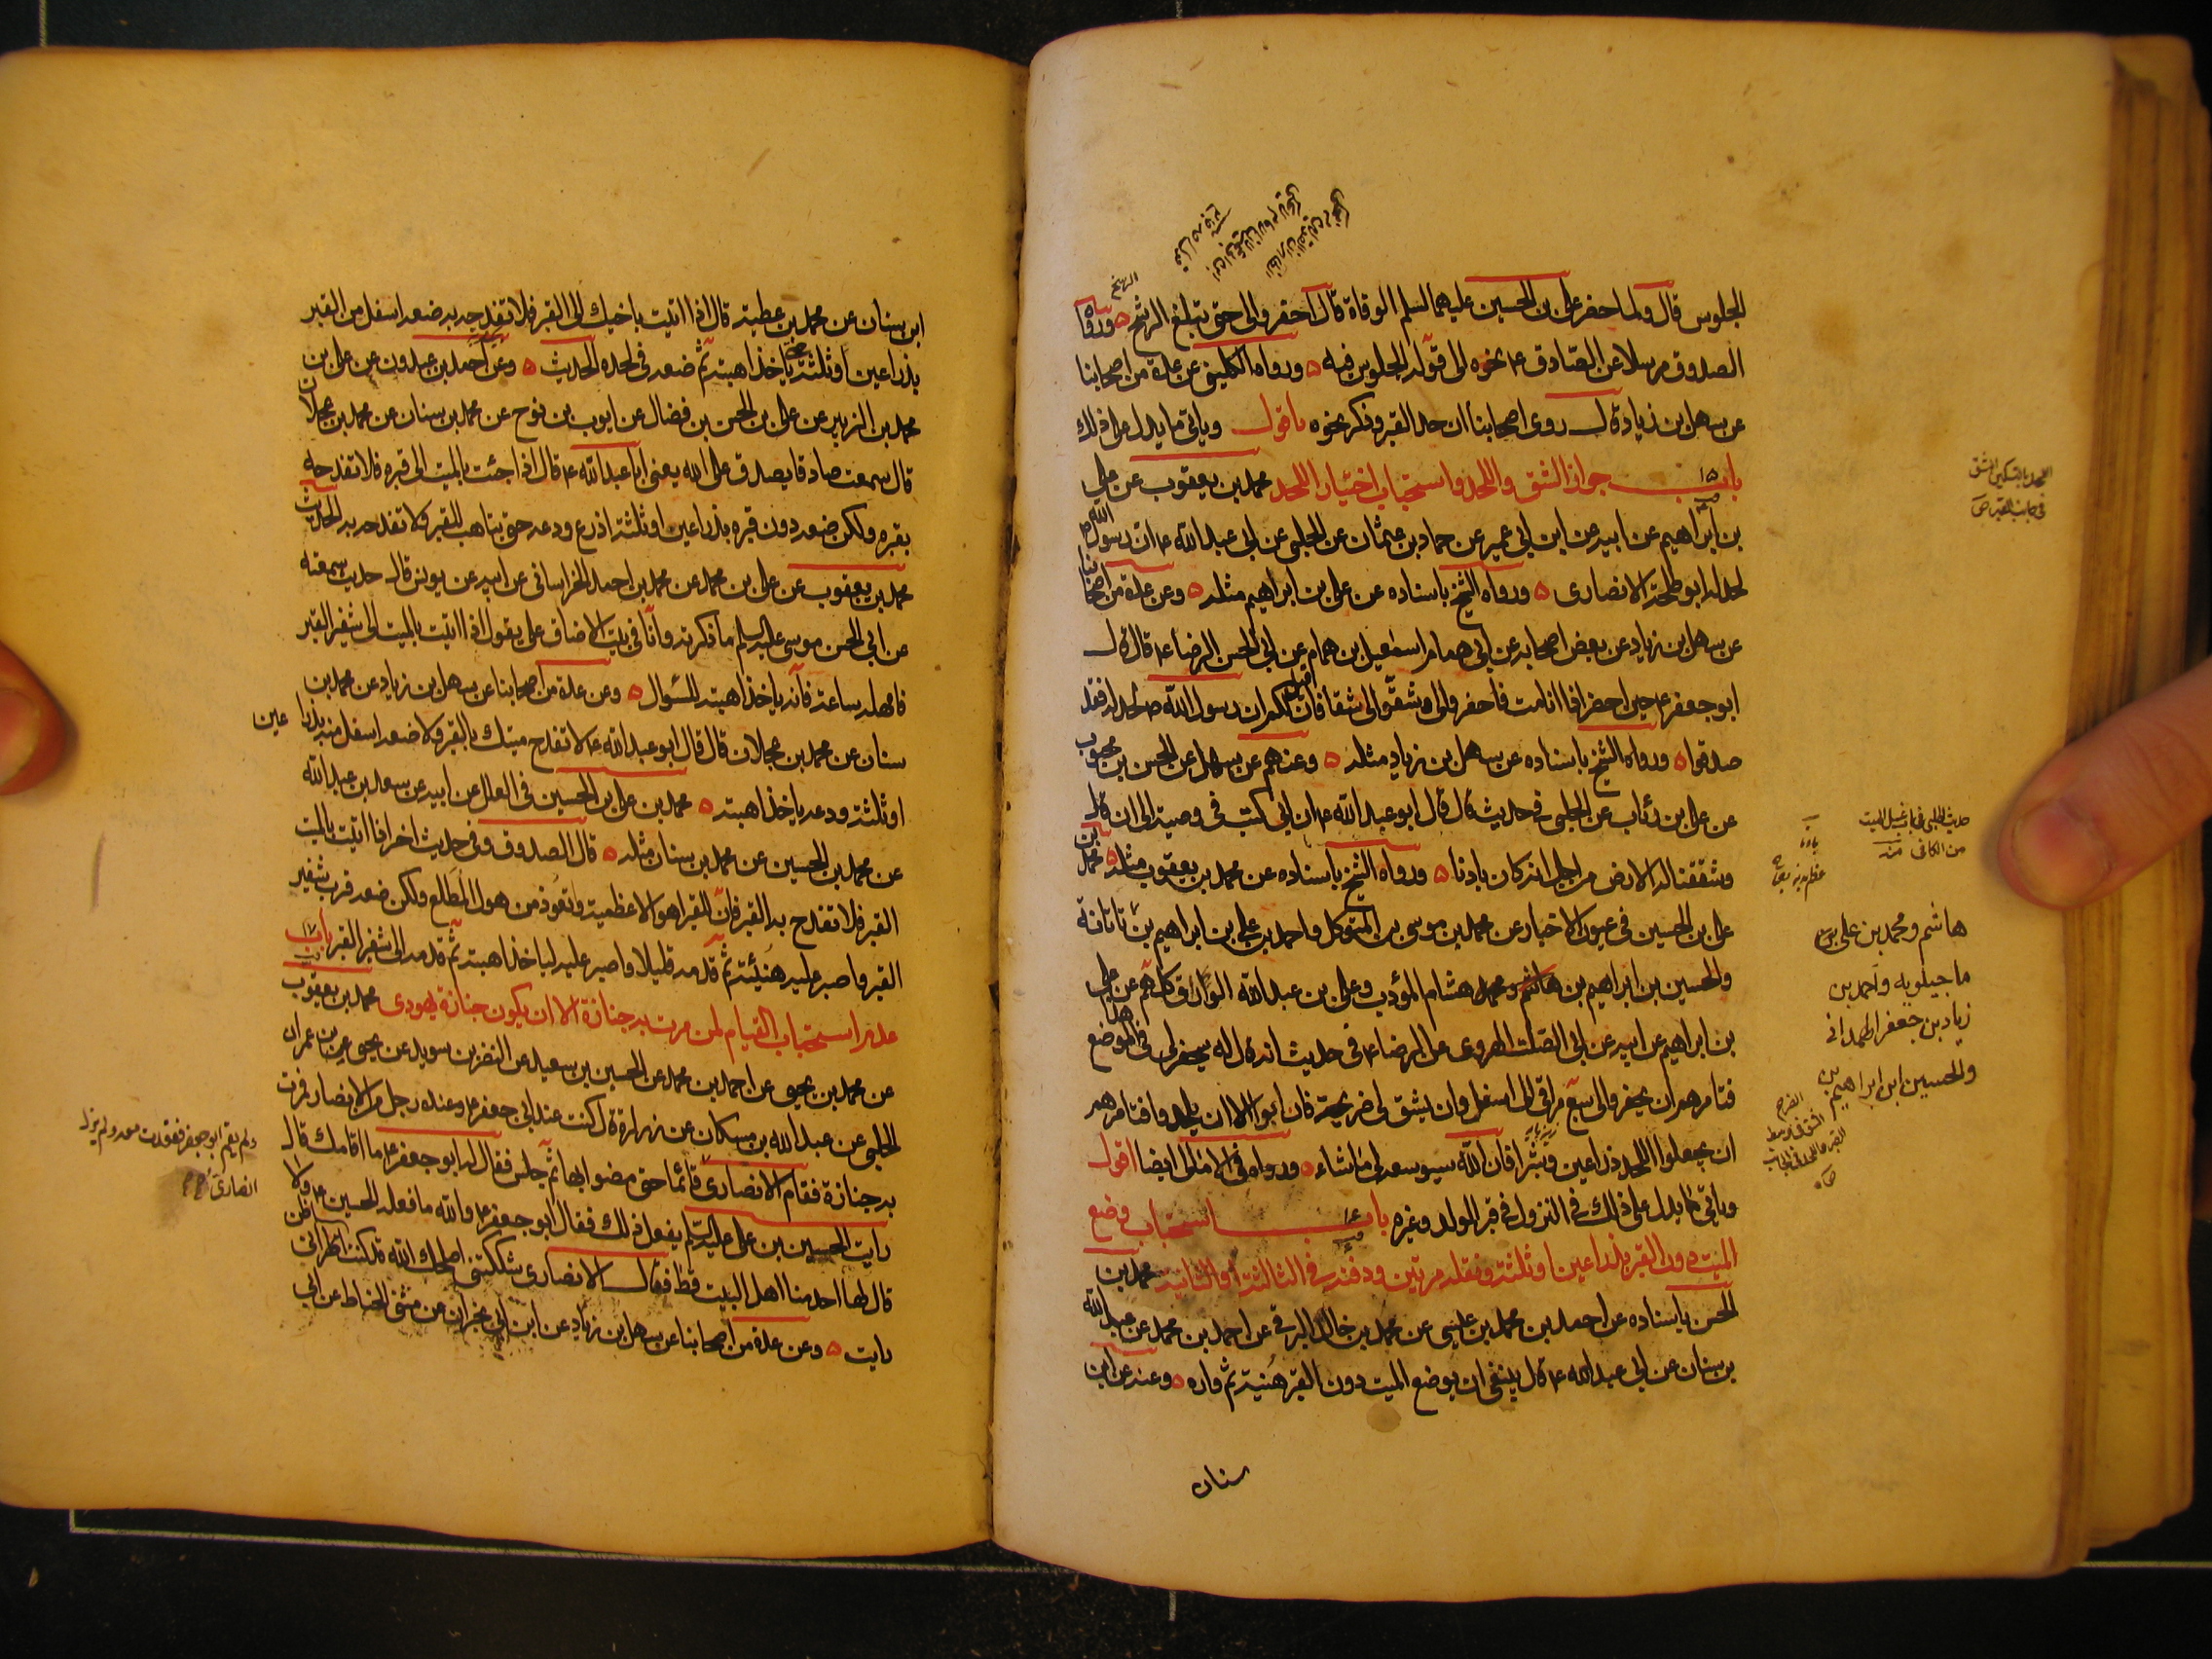 الجلوس قال ولما حضر علي بن الحسين عليهما السلم الوفاة قال احفروا لي حتى تبلغ الرشح ورواه
الصدوق مرسلا عن الصادق ع نحوه الى قوله الجلوس فيه ورواه الكليني عن عدة من اصحابنا
عن سهل بن زياد قال روى اصحابنا ان حد القبر وذكر نحوه اقول وياتي ما يدل على ذلك
باب جواز الشق واللحد واستحباب اختيار اللحد محمد بن يعقوب عن علي
بن ابراهيم عن ابيه عن ابن ابي عمير عن حماد بن عثمان عن الحلبي عن ابي عبد الله ع ان رسول الله ص
لحد له ابو طلحة الانصاري ورواه الشيخ باسناده عن علي بن ابراهيم مثله وعن عدة من اصحابنا
عن سهل بن زياد عن بعض اصحابه عن ابي همام اسمعيل بن همام عن ابي الحسن الرضا ع قال قال
ابو جعفر ع حين احضر اذا انا مت فاحفروا لي وشقوا لي شقا فان قيل لكم ان رسول الله ص لحد له فقد
صدقوا ورواه الشيخ باسناده عن سهل بن زياد مثله وعنهم عن سهل عن الحسن بن محبوب
عن علي بن رئاب عن الحلبي في حديث قال قال ابو عبد الله ع ان ابي كتب في وصيته الى ان قال
وشققنا له الارض من اجل انه كان بادنا ورواه الشيخ باسناده عن محمد بن يعقوب مثله محمد بن
علي بن الحسين في عيون الاخبار عن محمد بن موسى بن المتوكل واحمد بن علي بن ابراهيم بن تاتانة
والحسين بن ابراهيم بن هشام المؤدب وعلي بن عبد الله الوراق كلهم عن علي
بن ابراهيم عن ابيه عن ابي الصلت الهروي عن الرضا ع في حديث انه قال له سيحفر لي في هذا الموضع
فتامرهم ان يحفروا لي سبع مراقي الى اسفل وان يشق لي ضريحة فان ابوا الا ان يلحدوا فتامرهم
ان يجعلوا اللحد ذراعين وشبرا فان الله سيوسعه لي ما شاء ورواه في الامالي ايضا اقول
وياتي ما يدل على ذلك في النزول في قبر الولد وغيره باب استحباب وضع
الميت دون القبر بذراعين او ثلثة ونقله مرتين ودفنه في الثالثة او الثانية محمد بن
الحسن باسناده عن احمد بن محمد بن عيسى عن محمد بن خالد البرقي عن احمد بن محمد عن عبد الله
بن سنان عن ابي عبد الله ع قال ينبغي ان يوضع الميت دون القبر هنيئة ثم واره وعنه عن ابن
سنان
اللحد بالتسكين الشق
في جانب القبر ص
حديث الحلبي في باب غسل الميت
من الكافي منه
هاشم ومحمد بن علي
ماجيلويه واحمد بن
زياد بن جعفر الهمداني
والحسين ابن ابراهيم بن
ابن سنان عن محمد بن عطية قال اذا اتيت باخيك الى القبر فلا تفدحه به ضعه اسفل من القبر
بذراعين او ثلثة حتى ياخذ اهبته ثم ضعه في لحده الحديث وعن احمد بن عبدون عن علي بن
محمد بن الزبير عن علي بن الحسن بن فضال عن ايوب بن نوح عن محمد بن سنان عن محمد بن عجلان
قال سمعت صادقا يصدق على الله يعني ابا عبد الله ع قال اذا جئت بالميت الى قبره فلا تفدحه
بقبره ولكن ضعه دون قبره بذراعين او ثلثة اذرع ودعه حتى يتاهب للقبر ولا تفدحه به الحديث
محمد بن يعقوب عن علي بن محمد عن محمد بن احمد الخراساني عن ابيه عن يونس قال حديث سمعته
عن ابي الحسن موسى عليه السلم ما ذكرته وانا في بيت الا ضاق علي يقول اذا اتيت بالميت الى شفير القبر
فامهله ساعة فانه ياخذ اهبته للسئوال وعن عدة من اصحابنا عن سهل بن زياد عن محمد بن
سنان عن محمد بن عجلان قال قال ابو عبد الله ع لا تفدح ميتك بالقبر ولا ضعه اسفل منه بذراعين
او ثلثة ودعه ياخذ اهبته محمد بن علي بن الحسين في العلل عن ابيه عن سعد بن عبد الله
عن محمد بن الحسين عن محمد بن سنان مثله قال الصدوق وفي حديث اخر اذا اتيت بالميت
القبر فلا تفدح به القبر فان للقبر اهوالا عظيمة وتعوذ من هول المطلع ولكن ضعه قرب شفير
القبر واصبر عليه هنيئة ثم قدمه قليلا واصبر عليه لياخذ اهبته ثم قدمه الى شفير القبر باب
عدم استحباب القيام لمن مرت به جنازة الا ان يكون جنازة يهودي محمد بن يعقوب
عن محمد بن يحيى عن احمد بن محمد عن الحسين بن سعيد عن النضر بن سويد عن يحيى بن عمران
الحلبي عن عبد الله بن مسكان عن زرارة قال كنت عند ابي جعفر ع وعنده رجل من الانصار فمرت
به جنازة فقام الانصاري قائما حتى مضوا بها ثم جلس فقال له ابو جعفر ع ما اقامك قال
رايت الحسين بن علي عليه السلم يفعل ذلك فقال ابو جعفر ع والله ما فعله الحسين ع ولا
قام لها احد منا اهل البيت قط فقال الانصاري شككتني اصلحك الله قد كنت اظن اني
رايت وعن عدة من اصحابنا عن سهل بن زياد عن ابن ابي نجران عن مثنى الحناط عن ابي
ولم يقم ابو جعفر فقعدت معه ولم يزل
الانصاري